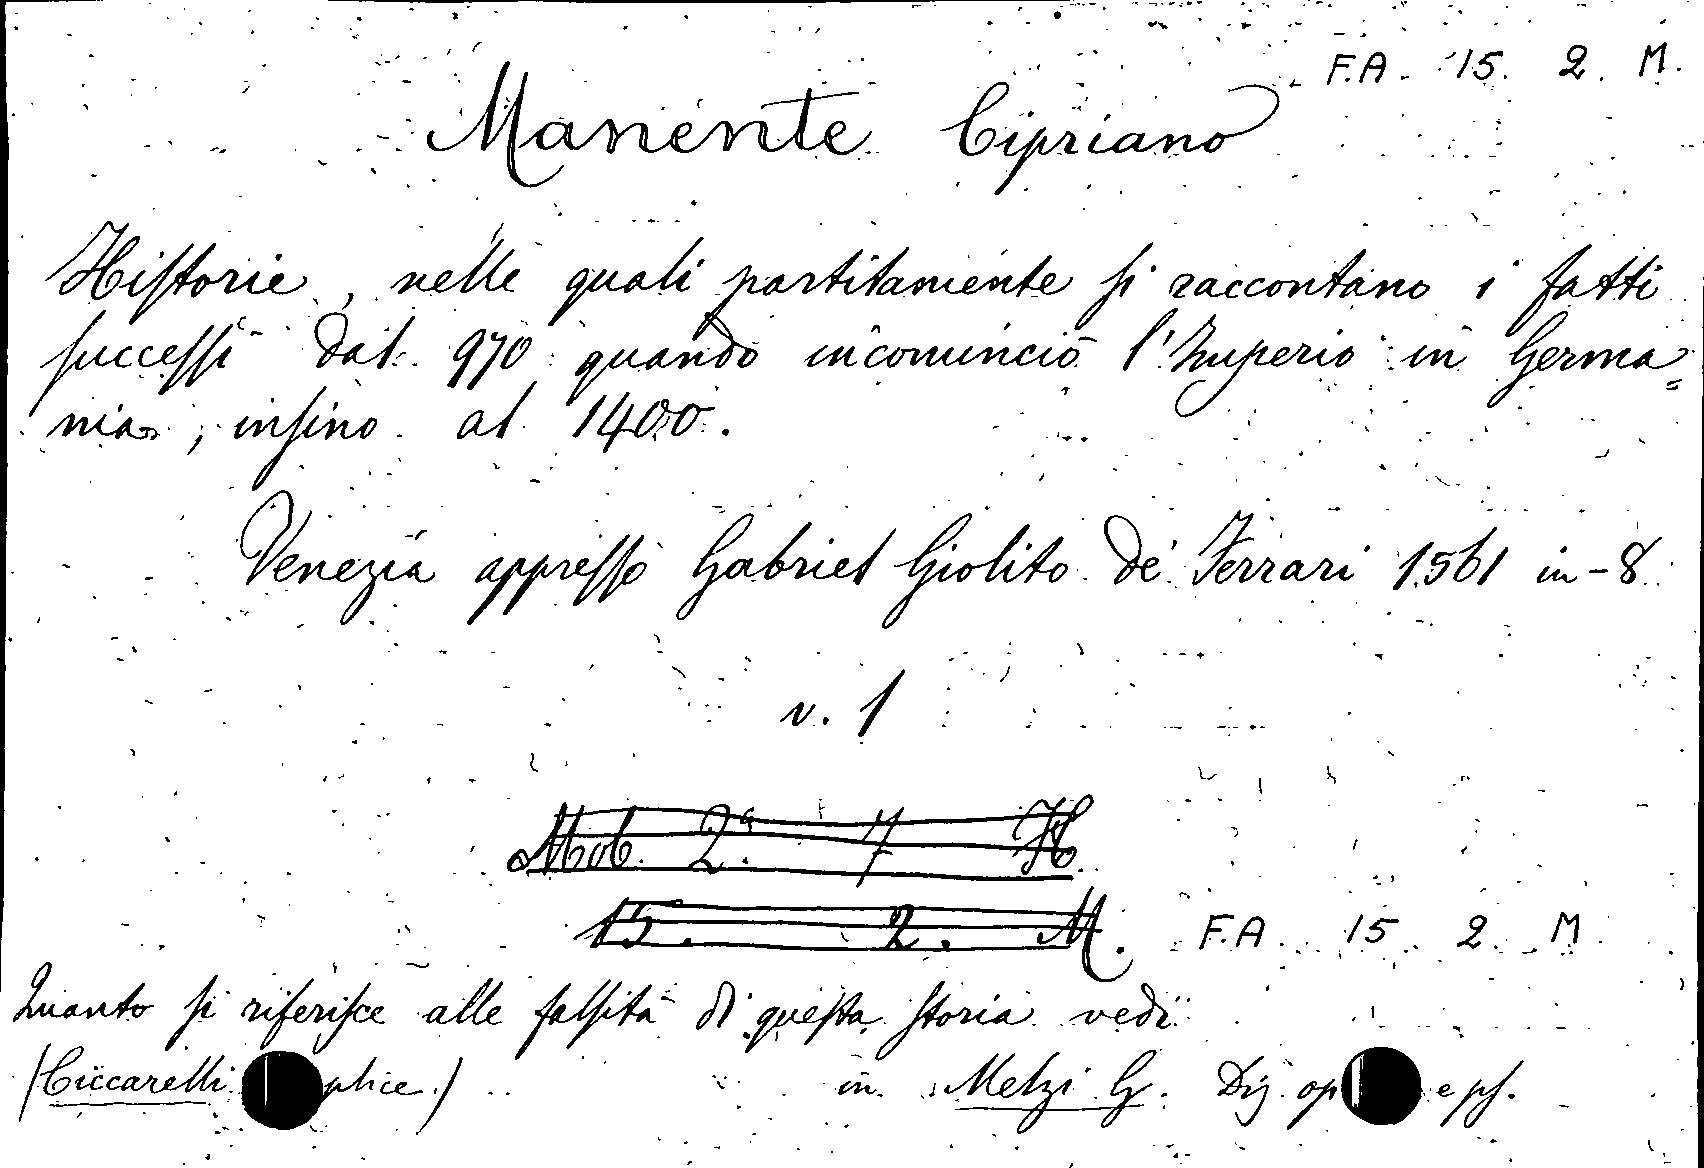 F.A. 15. 2. M.
Manente Cipriano
Historie, nelle quali partitamente si raccontano i fatti
successi dal 970 quando incominciò l'Imperio in Germa=
nia, insino al 1400.
Venezia appresso Gabriel Giolito de' Ferrari 1561 in-8
v. 1
Mob. 2ª. 7 H.
15. 2. M. F.A. 15 2 M
Quanto si riferisce alle falsità di questa storia vedi
(Ciccarelli plice.) in Melzi G. Diz. op e ps.